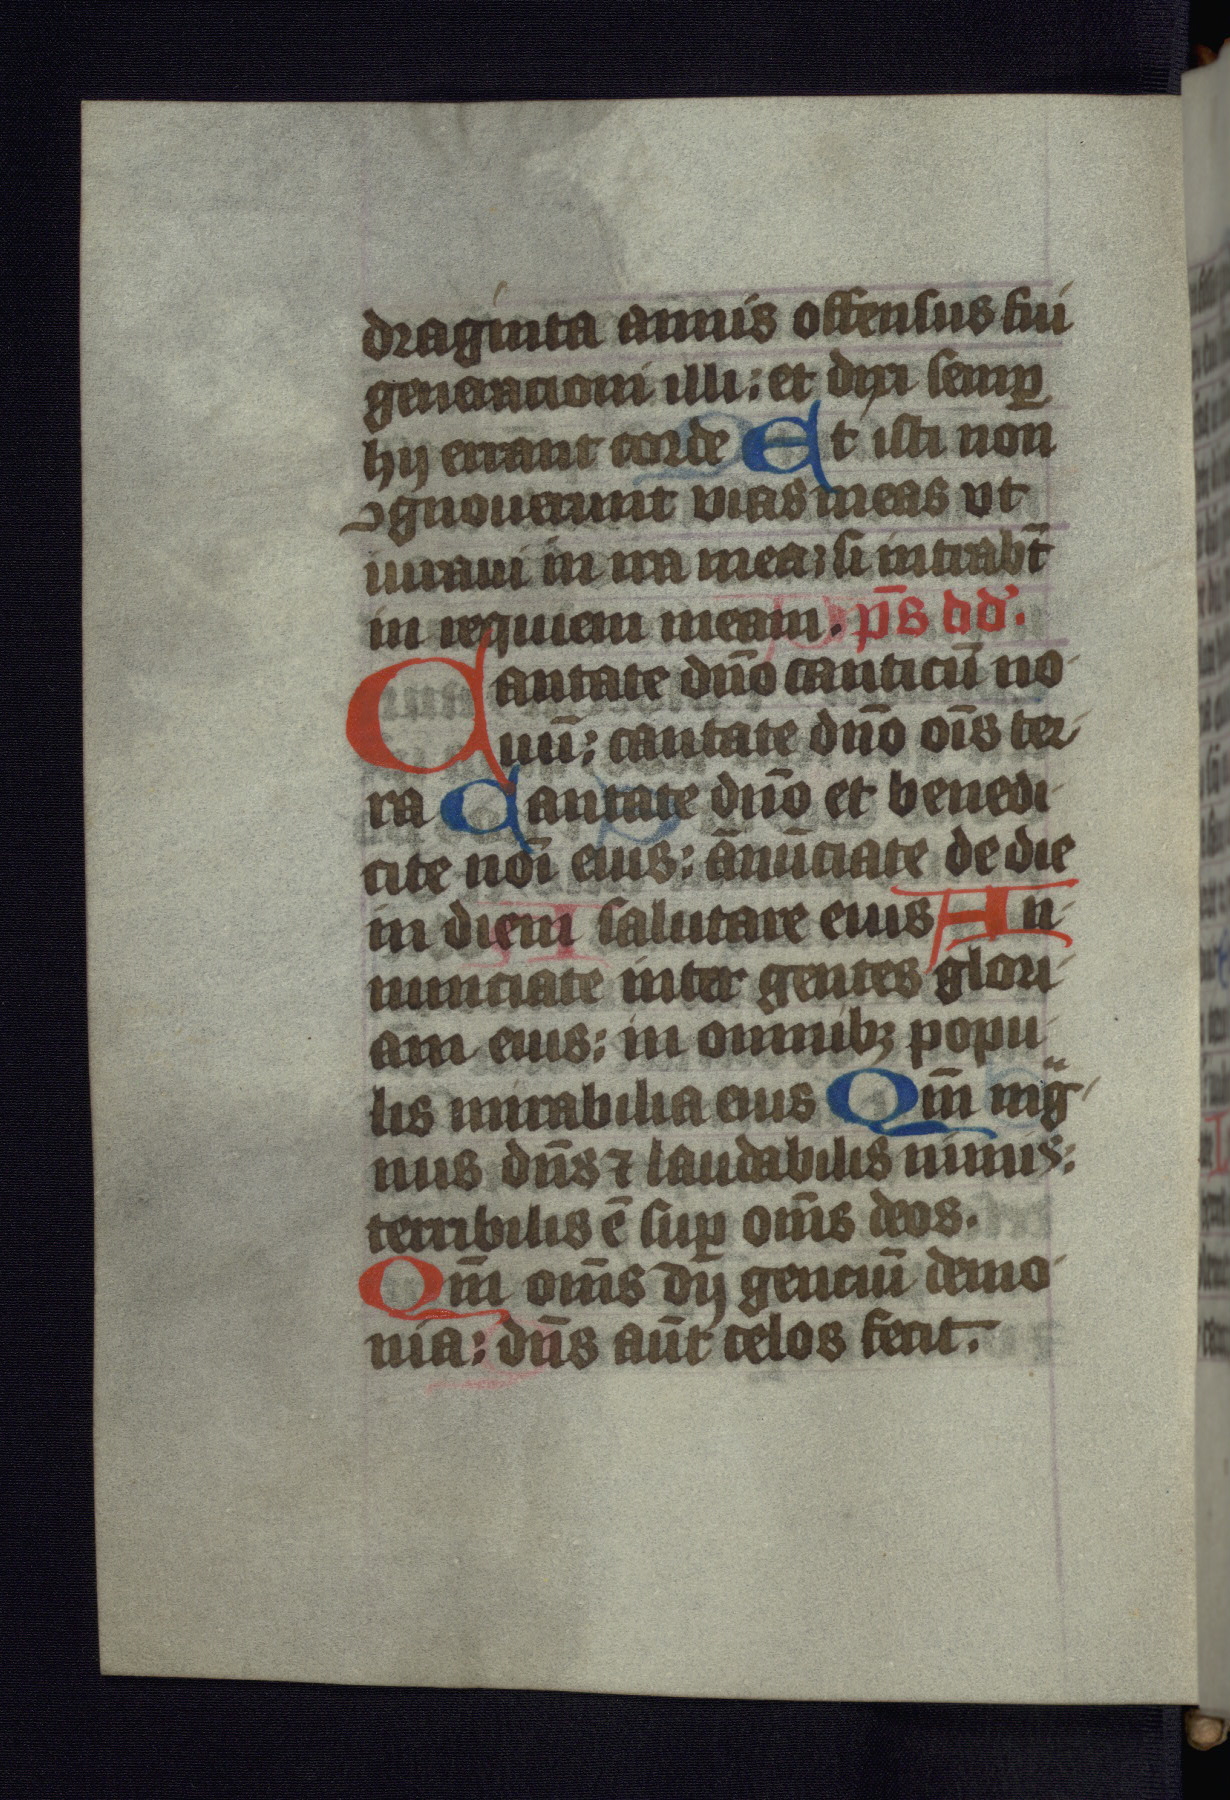 draginta annis offensus fui
generacioni illi: et dixi semꝑ
hij errant corde Et isti non
ꝯgnouerunt vias meas vt
iuraui in ira mea; si intrabt̄
in requiem meam. p̄s dd'.
Cantate dn̄o canticū no
uū: cantate dn̄o oīs ter
ra Cantate dn̄o et benedi
cite noī eius: ānūciate de die
in diem salutare eius An
nunciate inter gentes glori
am eius: in omnibꝫ popu
lis mirabilia eius Qm̄ mḡ
nus dn̄s ⁊ laudabilis nimis:
terribilis ē suꝑ om̄s deos.
Qm̄ om̄s dij genciū demo
nia: dn̄s aūt celos fecit.